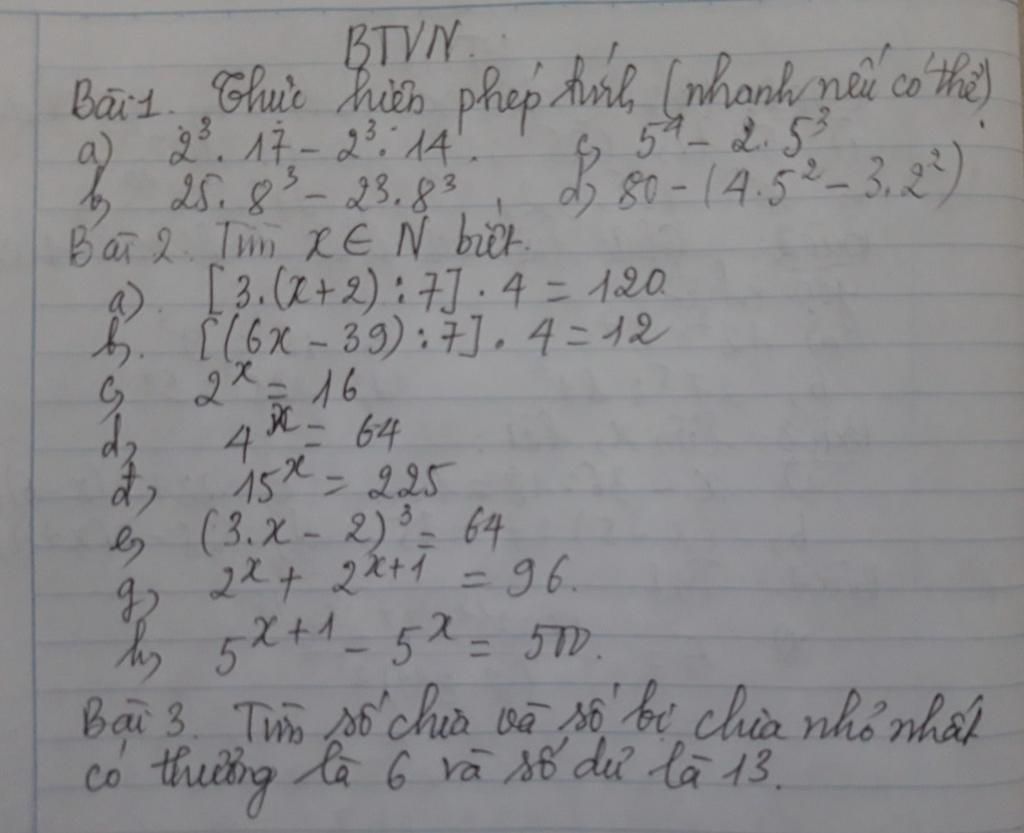 BTVN.
Bài 1. Thực hiện phép tính (nhanh nếu có thể).
a) 2³. 17 - 2³. 14. c) 5⁴ - 2. 5³
b) 25. 8³ - 23. 8³, d) 80 - (4. 5² - 3. 2²)
Bài 2. Tìm x ∈ N biết.
a). [3.(x+2) : 7] . 4 = 120.
b). [(6x - 39) : 7] . 4 = 12
c) 2ˣ = 16
d) 4ˣ = 64
đ) 15ˣ = 225
e) (3.x - 2)³ = 64
g) 2ˣ + 2ˣ⁺¹ = 96.
h) 5ˣ⁺¹ - 5ˣ = 500.
Bài 3. Tìm số chia và số bị chia nhỏ nhất
có thương là 6 và số dư là 13.